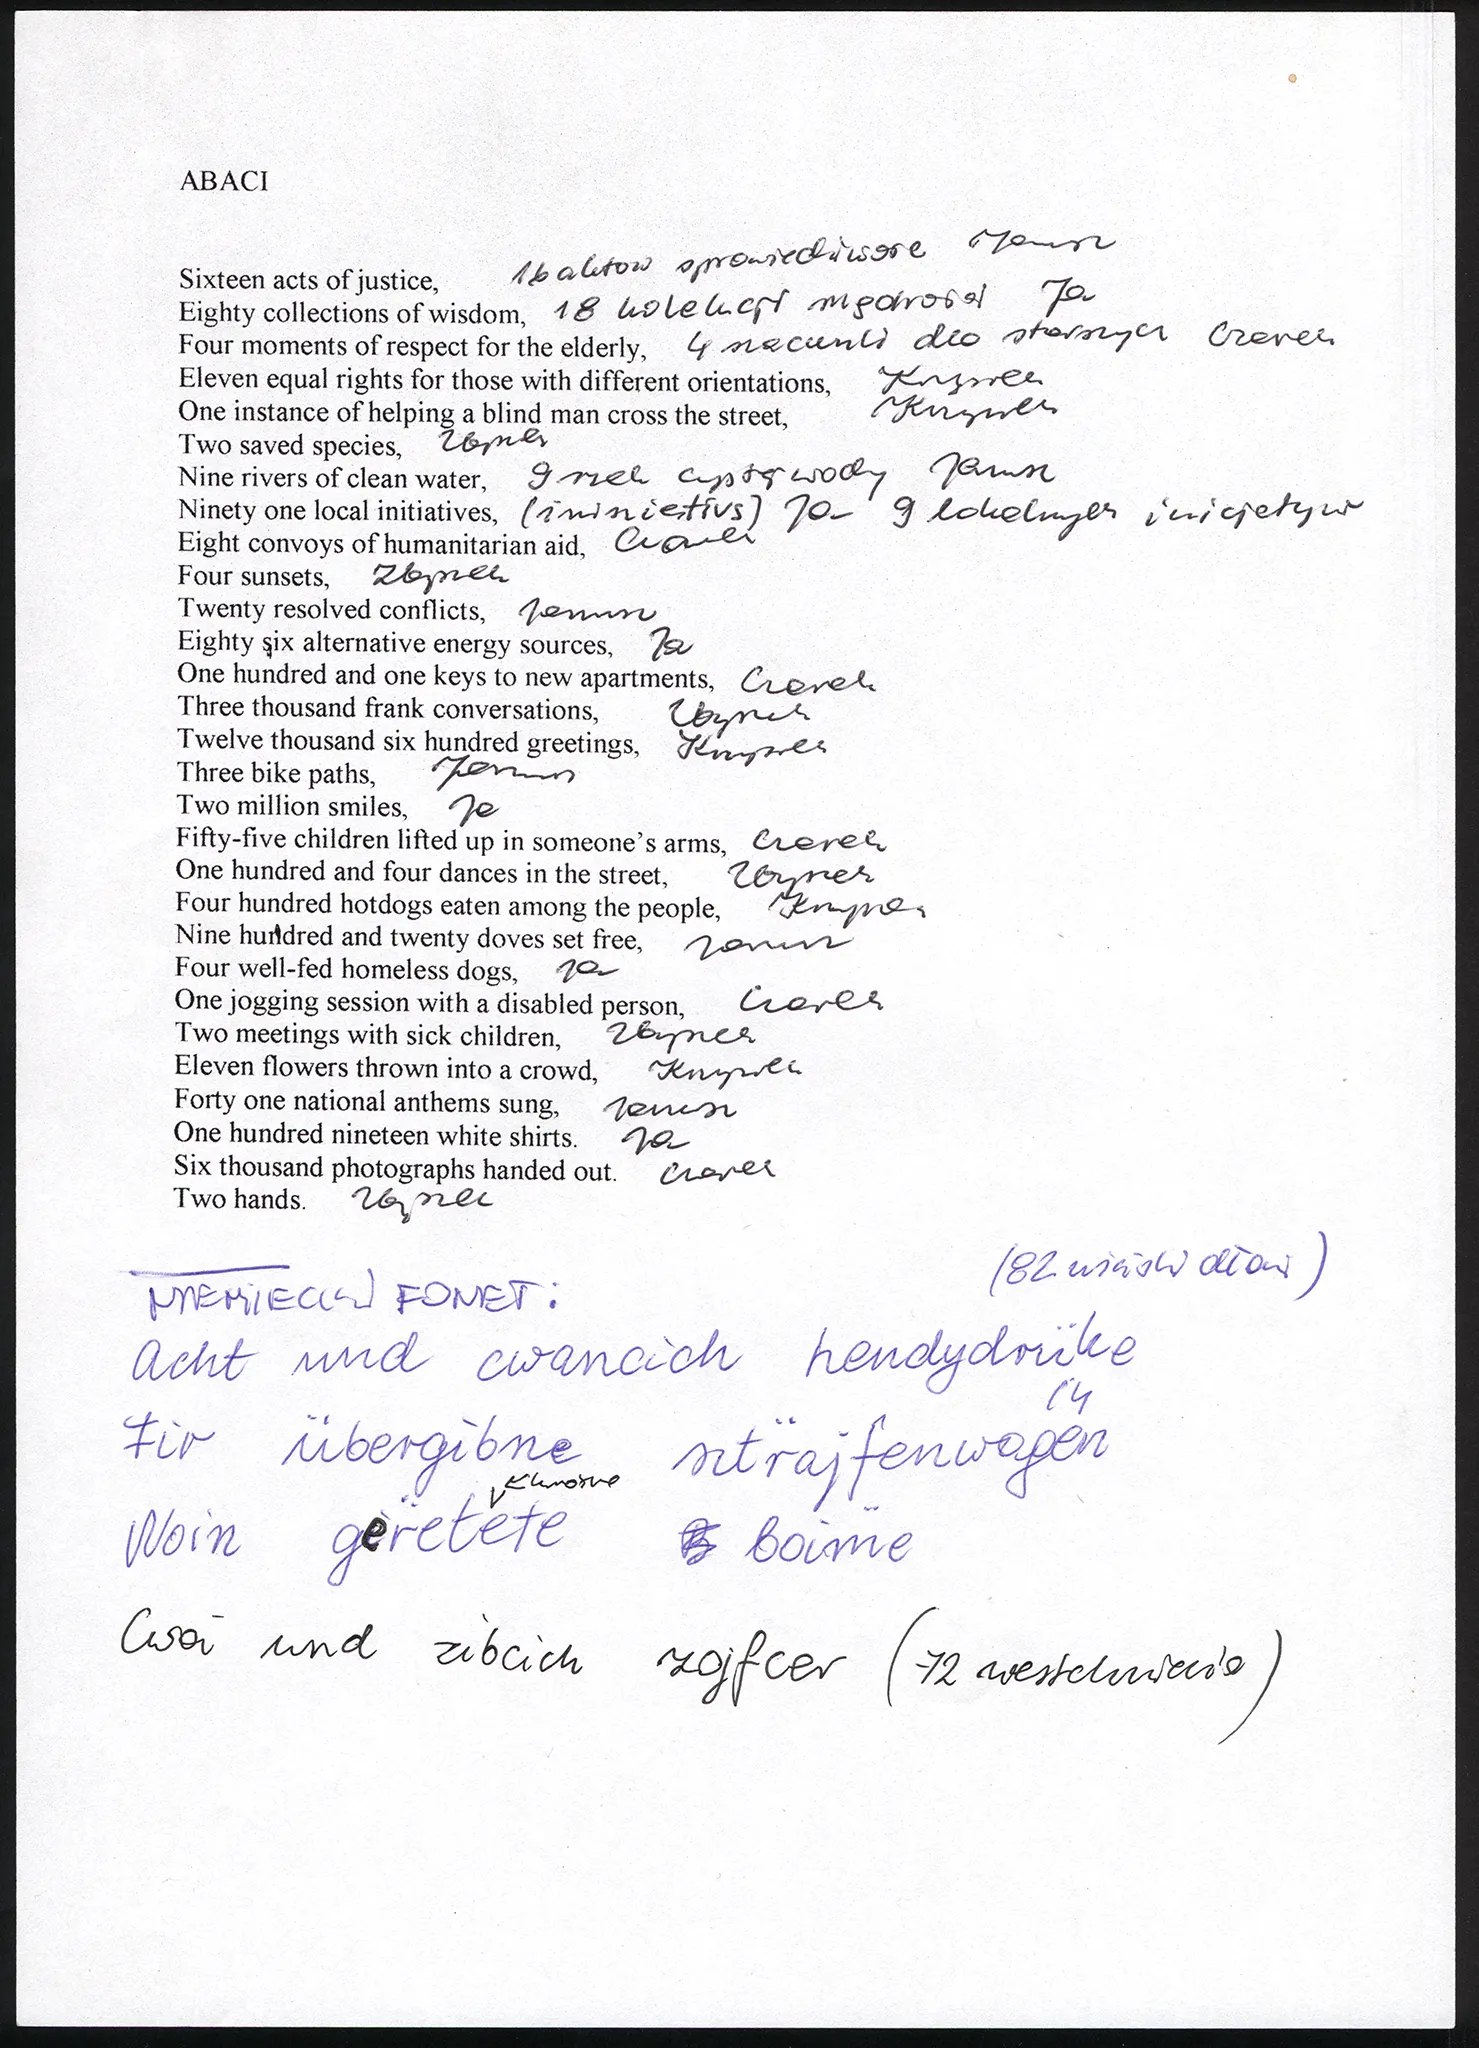 ABACI
Sixteen acts of justice, 16 aktów sprawiedliwości Janusz
Eighty collections of wisdom, 18 kolekcji mądrości Ja
Four moments of respect for the elderly, 4 szacunki dla starszych Czarek
Eleven equal rights for those with different orientations, Krzysiek
One instance of helping a blind man cross the street, Krzysiek
Two saved species, Zbyszek
Nine rivers of clean water, 9 rzek czystej wody Janusz
Ninety one local initiatives, (ininietivs) Ja 9 lokalnych inicjatyw
Eight convoys of humanitarian aid, Czarek
Four sunsets, Zbyszek
Twenty resolved conflicts, Janusz
Eighty six alternative energy sources, Ja
One hundred and one keys to new apartments, Czarek
Three thousand frank conversations, Zbyszek
Twelve thousand six hundred greetings, Krzysiek
Three bike paths, Janusz
Two million smiles, Ja
Fifty-five children lifted up in someone's arms, Czarek
One hundred and four dances in the street, Zbyszek
Four hundred hotdogs eaten among the people, Krzysiek
Nine hundred and twenty doves set free, Janusz
Four well-fed homeless dogs, Ja
One jogging session with a disabled person, Czarek
Two meetings with sick children, Zbyszek
Eleven flowers thrown into a crowd, Krzysiek
Forty one national anthems sung, Janusz
One hundred nineteen white shirts. Ja
Six thousand photographs handed out. Czarek
Two hands. Zbyszek
(82 uściski dłoni)
NIEMIECKI FONET:
Acht und cwancich hendydrüke
Fir übergibne szträjfenwagën
Noin geretete boime
Cwai und zibcich zojfcer (72 westchnienia)